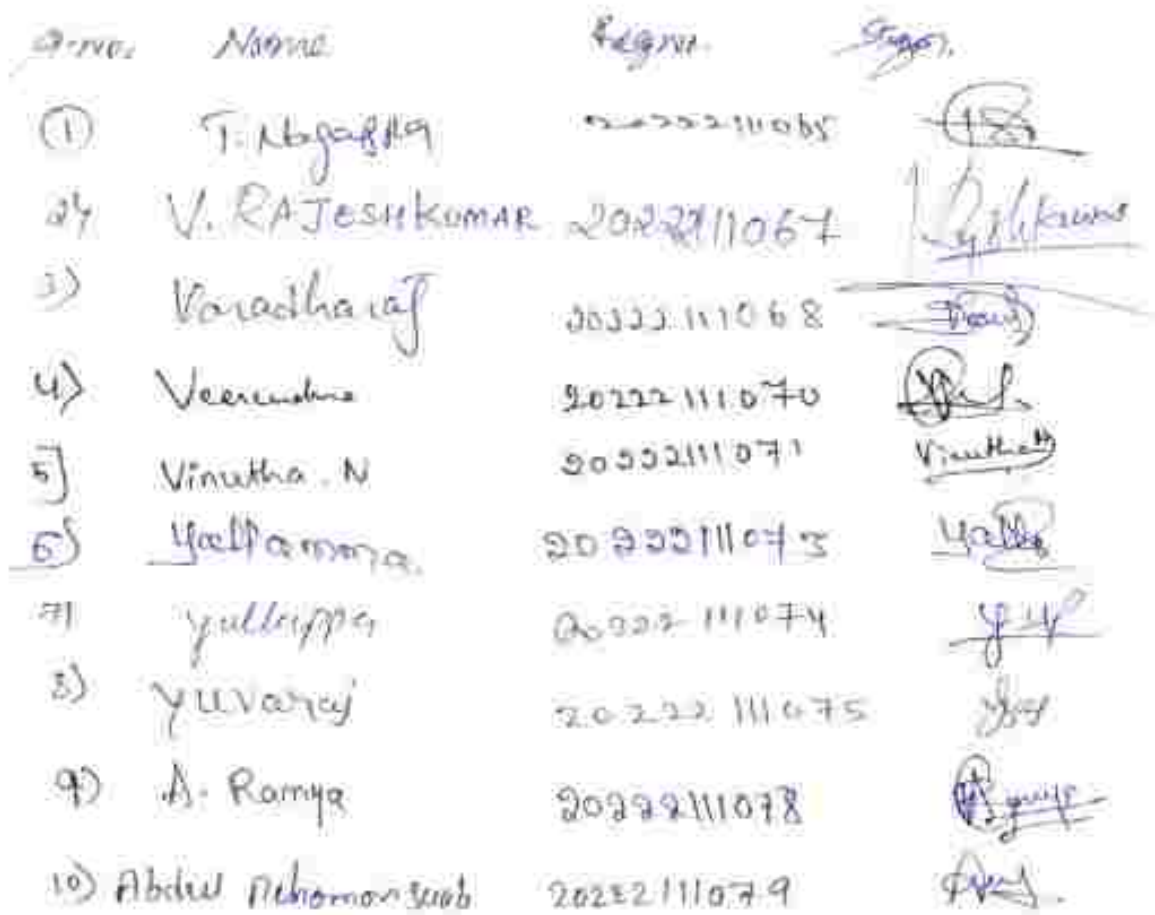 S.no. Name Regno. Sign.
① T. Nagappa 20222111065
2) V. RAJESHKUMAR 20222111067
3) Varadharaj 20222111068
4) Veerendra 20222111070
5] Vinutha. N 20222111071 Vinutha N
6) Yallamma. 20222111073 Yalla
7) Yallappa 20222111074
8) Yuvaraj 20222111075
9) A. Ramya 20222111078
10) Abdul 20222111079